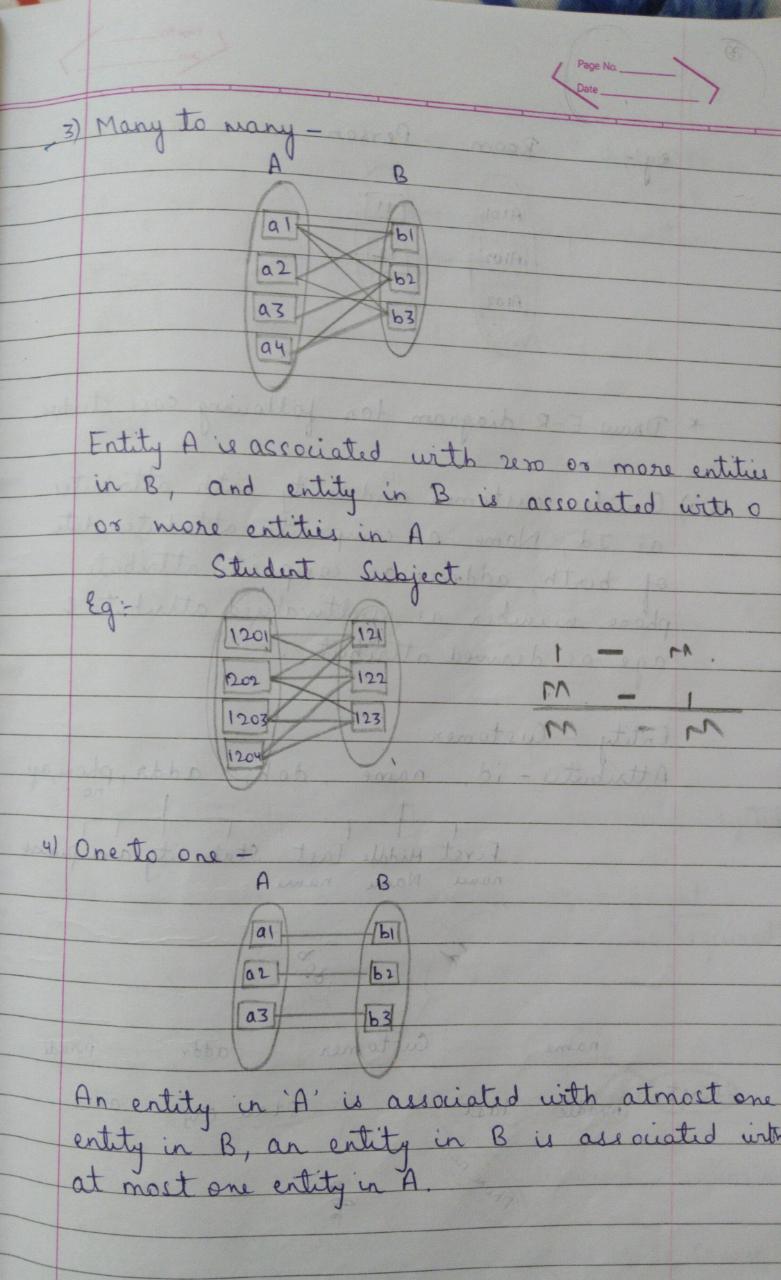 Page No.
Date
3) Many to many -
A B
a1 b1
a2 b2
a3 b3
a4
Entity A is associated with zero or more entities
in B, and entity in B is associated with 0
or more entities in A
Student Subject
Eg:-
1201 121
1202 122
1203 123
1204
1 - M.
M - 1
M - M
4) One to one -
A B
a1 b1
a2 b2
a3 b3
An entity in 'A' is associated with atmost one
entity in B, an entity in B is associated with
at most one entity in A.